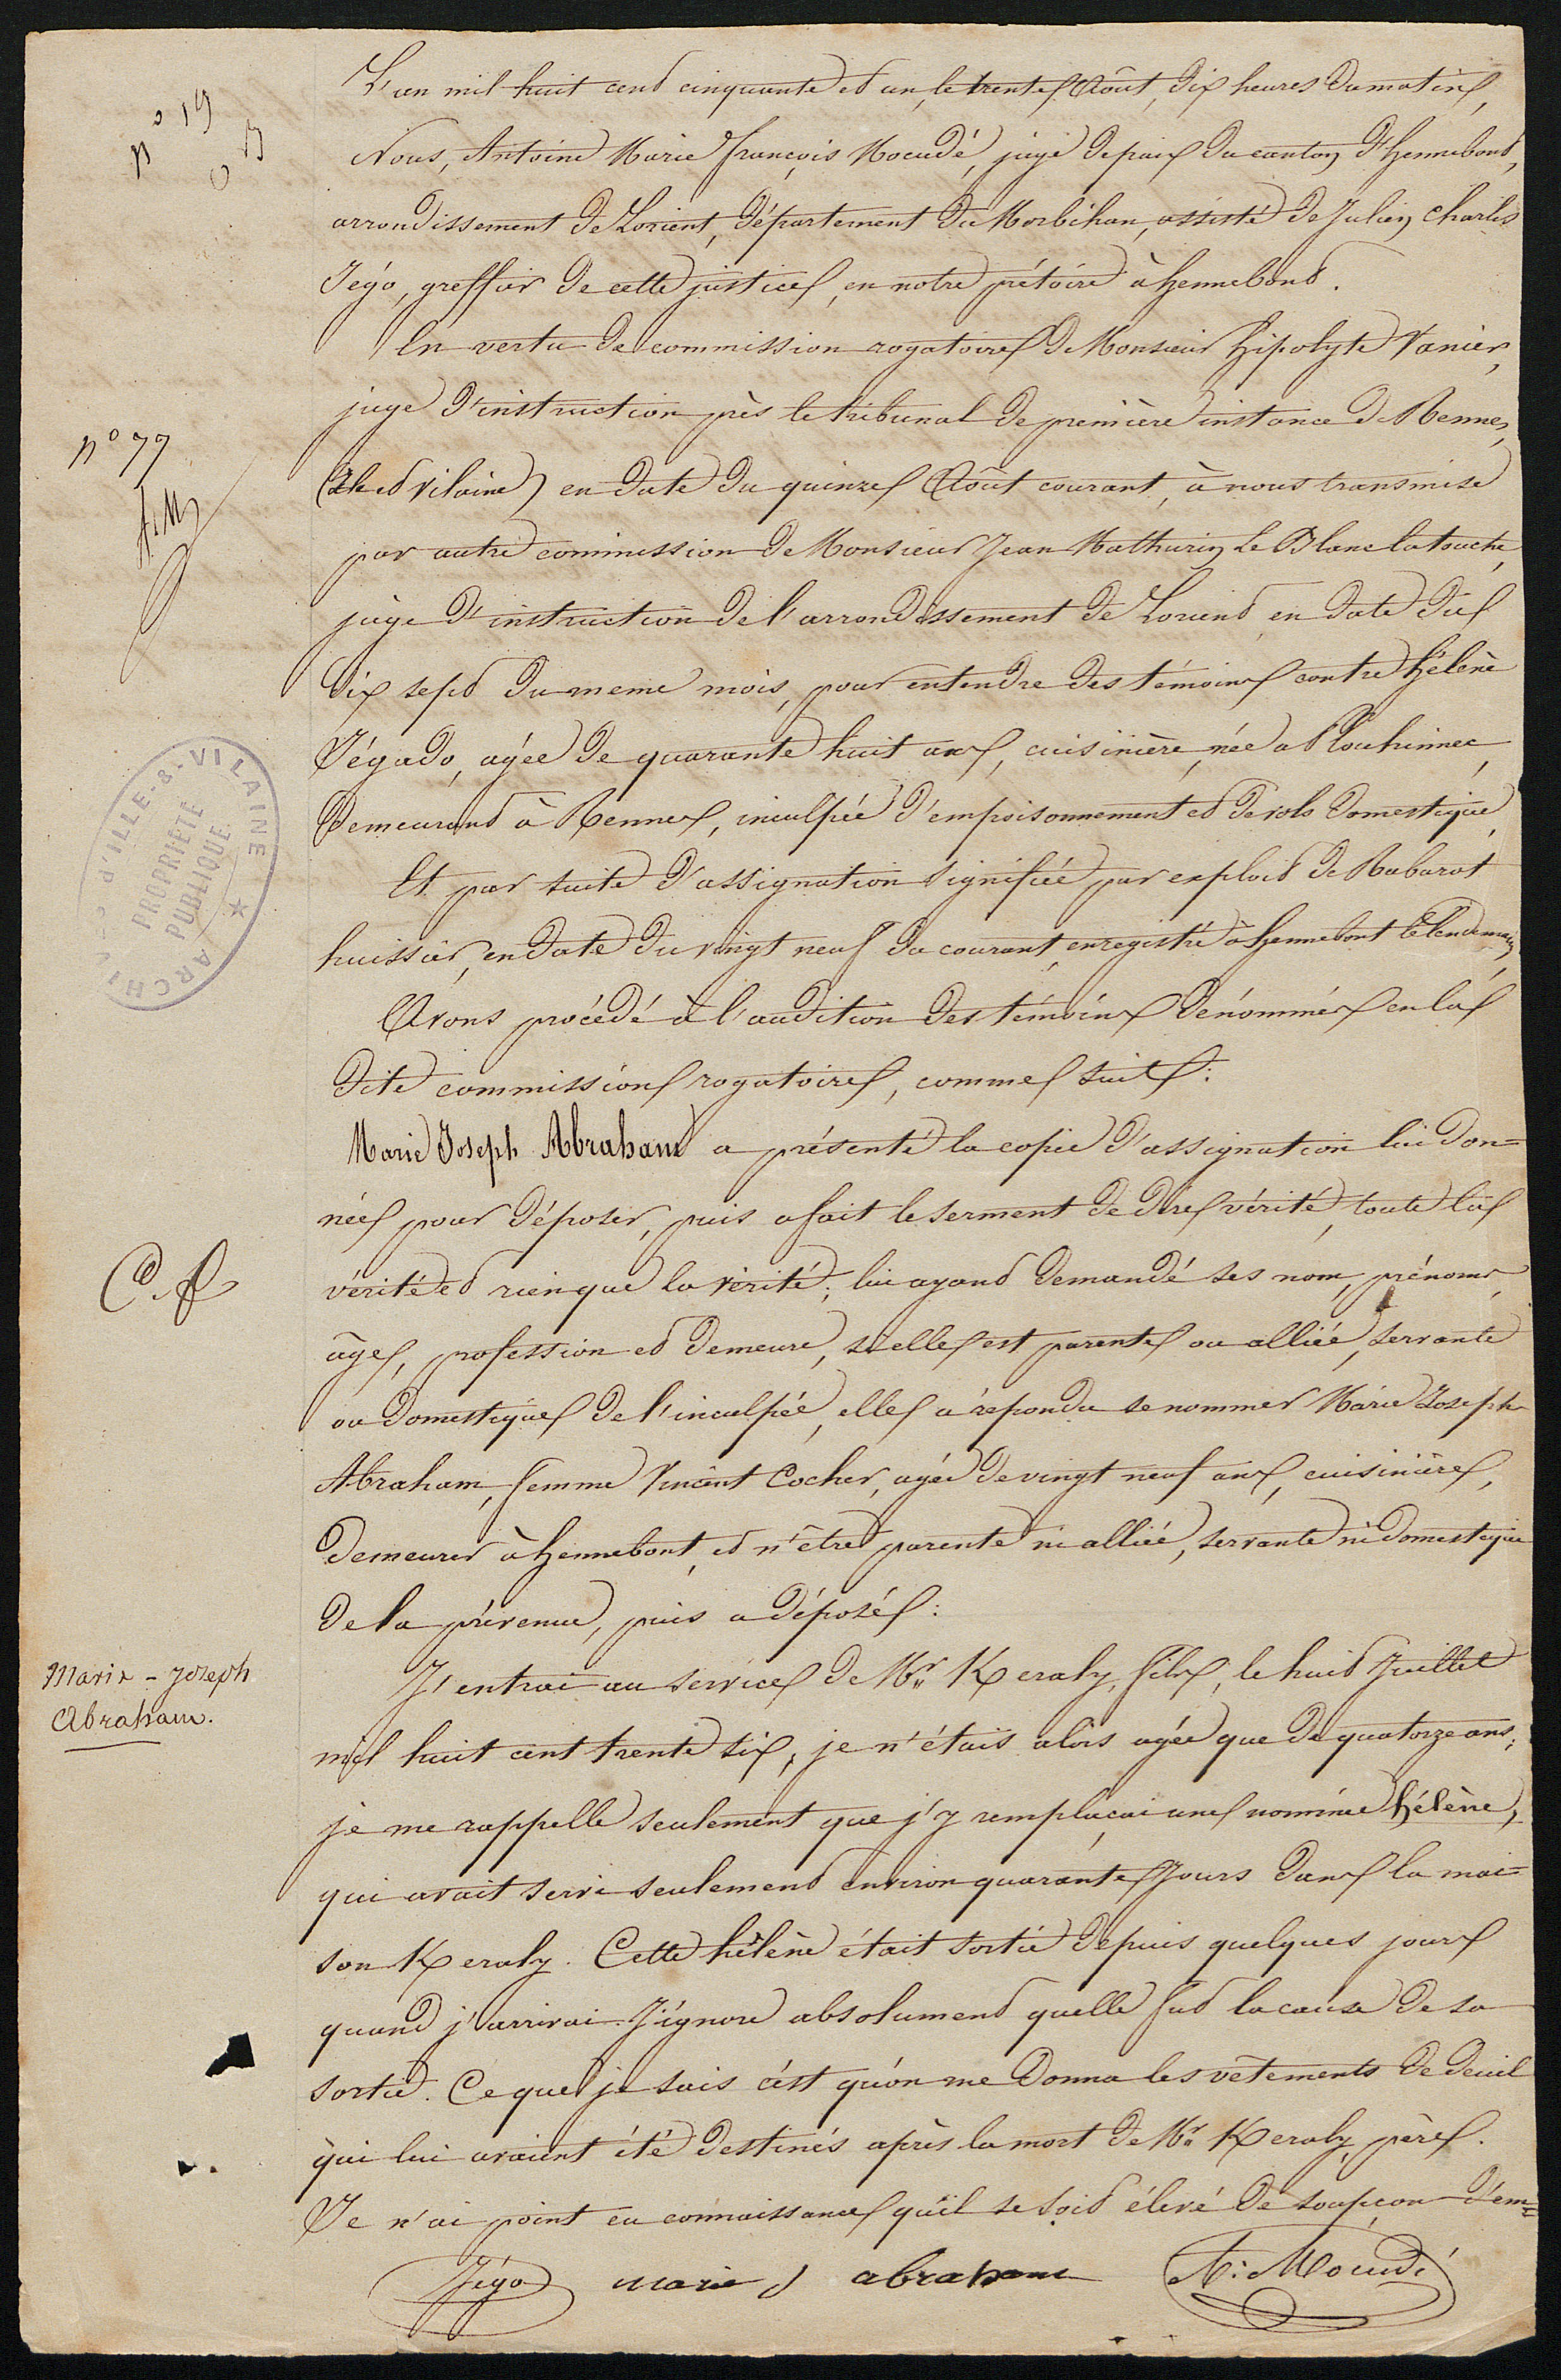 n° 19
n° 77
L'an mil huit cent cinquante et un, le trente Août, dix heures du matin,
Nous, Antoine Marie François Mocudé, juge de paix du canton d'hennebont,
arrondissement de Lorient, département du Morbihan, assisté de Julien Charles
Jégo, greffier de cette justice, en notre prétoire à hennebont.
En vertu de commission rogatoire de Monsieur hipolyte Vanier,
juge d'instruction près le tribunal de première instance de Rennes,
(Ille et Vilaine) en date du quinze Août courant, à nous transmise
par autre commission de Monsieur Jean Mathurin Le Blanc latouche,
juge d'instruction de l'arrondissement de Lorient en date du
dix sept du meme mois, pour entendre des témoins contre hélène
Jégado, agée de quarante huit ans, cuisinière, née a Plouhinnec,
demeurant à Rennes, inculpée d'empoisonnement et de vols domestique,
Et par suite d'assignation signifiée par exploit de Rabarot
huissier, en date du vingt neuf du courant, enregistré à hennebont le lendemain,
Avons procédé à l'audition des témoins dénommés en la
dite commission rogatoire, comme suit :
Marie Joseph Abraham a présenté la copie d'assignation lui don=
née pour déposer, puis a fait le serment de dire vérité, toute la
vérité et rien que la vérité; lui ayant demandé ses nom, prénoms,
âge, profession et demeure, si elle est parente ou alliée, servante
ou domestique de l'inculpée, elle a répondu se nommer Marie Joseph
Abraham, femme Vincent Cocher, agée de vingt neuf ans, cuisinière,
demeurer à hennebont, et n'être parente ni alliée, servante ni domestique
de la prévenue, puis a déposé :
Marie - Joseph
Abraham.
J'entrai au service de Mr Keraly, fils, le huit Juillet
mil huit cent trente six, je n'étais alors agée que de quatorze ans;
je me rappelle seulement que j'y remplaçai une nommée hélène,
qui avait servi seulement environ quarante jours dans la mai=
son Keraly. Cette hélène était sortie depuis quelques jours
quand j'arrivai. J'ignore absolument quelle fut la cause de sa
sortie. Ce que je sais c'est qu'on me donna les vêtements de deuil
qui lui avaient été destinés après la mort de Mr Keraly, père.
Je n'ai point eu connaissance qu'il se soit élevé de soupçon d'em=
Jégo marie J abraham A: Mocudé
ARCHIVES d'ILLE-&-VILAINE ★
PROPRIÉTÉ
PUBLIQUE